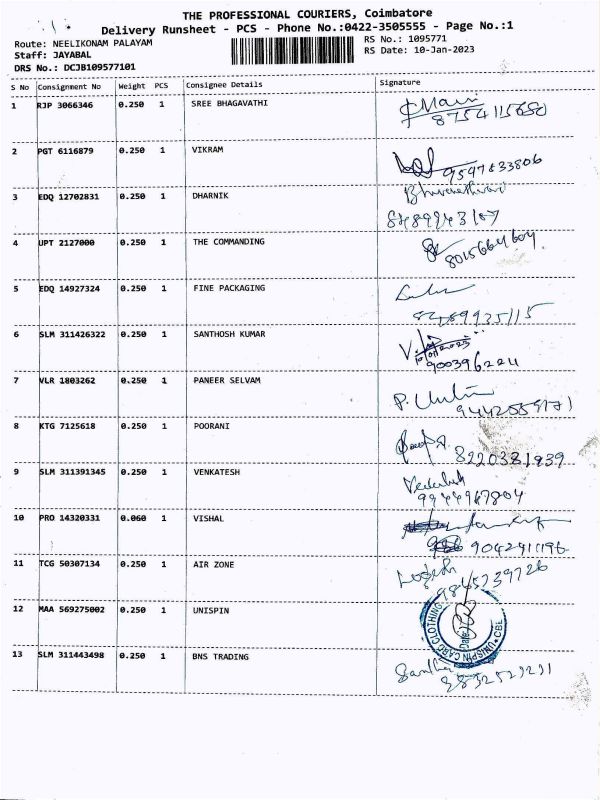 THE PROFESSIONAL COURIERS, Coimbatore
Delivery Runsheet - PCS - Phone No.:0422-3505555 - Page No.:1
Route: NEELIKONAM PALAYAM
RS No.: 1095771
Staff: JAYABAL
RS Date: 10-Jan-2023
DRS No.: DCJB109577101
S No Consignment No Weight PCS Consignee Details Signature
1 RJP 3066346 0.250 1 SREE BHAGAVATHI
8754115650
2 PGT 6116879 0.250 1 VIKRAM
9597833806
3 EDQ 12702831 0.250 1 DHARNIK
4 UPT 2127000 0.250 1 THE COMMANDING
8015664604
5 EDQ 14927324 0.250 1 FINE PACKAGING
6 SLM 311426322 0.250 1 SANTHOSH KUMAR
900396224
7 VLR 1803262 0.250 1 PANEER SELVAM
8 KTG 7125618 0.250 1 POORANI
8220381939
9 SLM 311391345 0.250 1 VENKATESH
9944967804
10 PRO 14320331 0.060 1 VISHAL
9042411196
11 TCG 50307134 0.250 1 AIR ZONE
9845739726
12 MAA 569275002 0.250 1 UNISPIN
UNISPIN CARD CLOTHING CBE
13 SLM 311443498 0.250 1 BNS TRADING